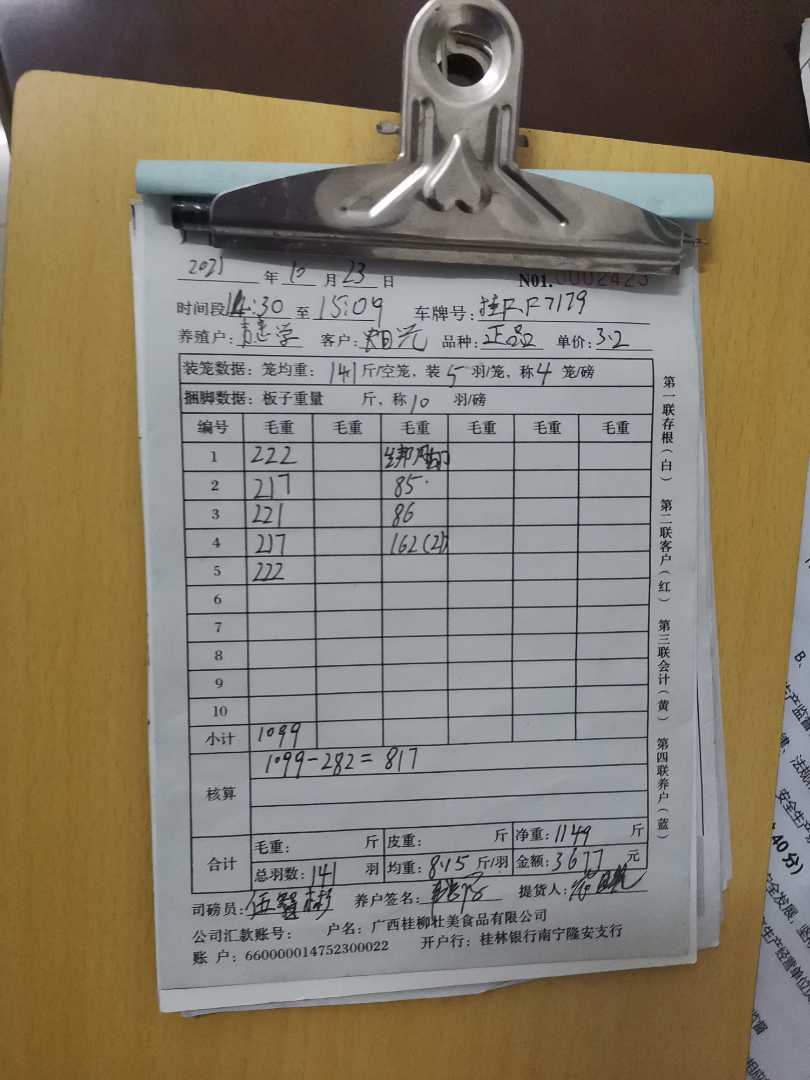 2021 年 10 月 23 日 N01.0002423
时间段 14:30 至 15:09 车牌号: 桂FF7179
养殖户: 客户: 阳光 品种: 正品 单价: 3.2
装笼数据: 笼均重: 14.1 斤/空笼, 装 5 羽/笼, 称 4 笼/磅
捆脚数据: 板子重量 斤, 称 10 羽/磅
编号 毛重 毛重 毛重 毛重 毛重 毛重
1 222
2 217 85
3 221 86
4 217 162(2)
5 222
6
7
8
9
10
小计 1099
核算 1099-282=817
合计 毛重: 斤 皮重: 斤 净重: 1149 斤
总羽数: 141 羽 均重: 8.15 斤/羽 金额: 3677 元
司磅员: 伍智彬 养户签名: 提货人:
公司汇款账号: 户名: 广西桂柳壮美食品有限公司
账 户: 660000014752300022 开户行: 桂林银行南宁隆安支行
第一联存根(白) 第二联客户(红) 第三联会计(黄) 第四联养户(蓝)
B、
40分)